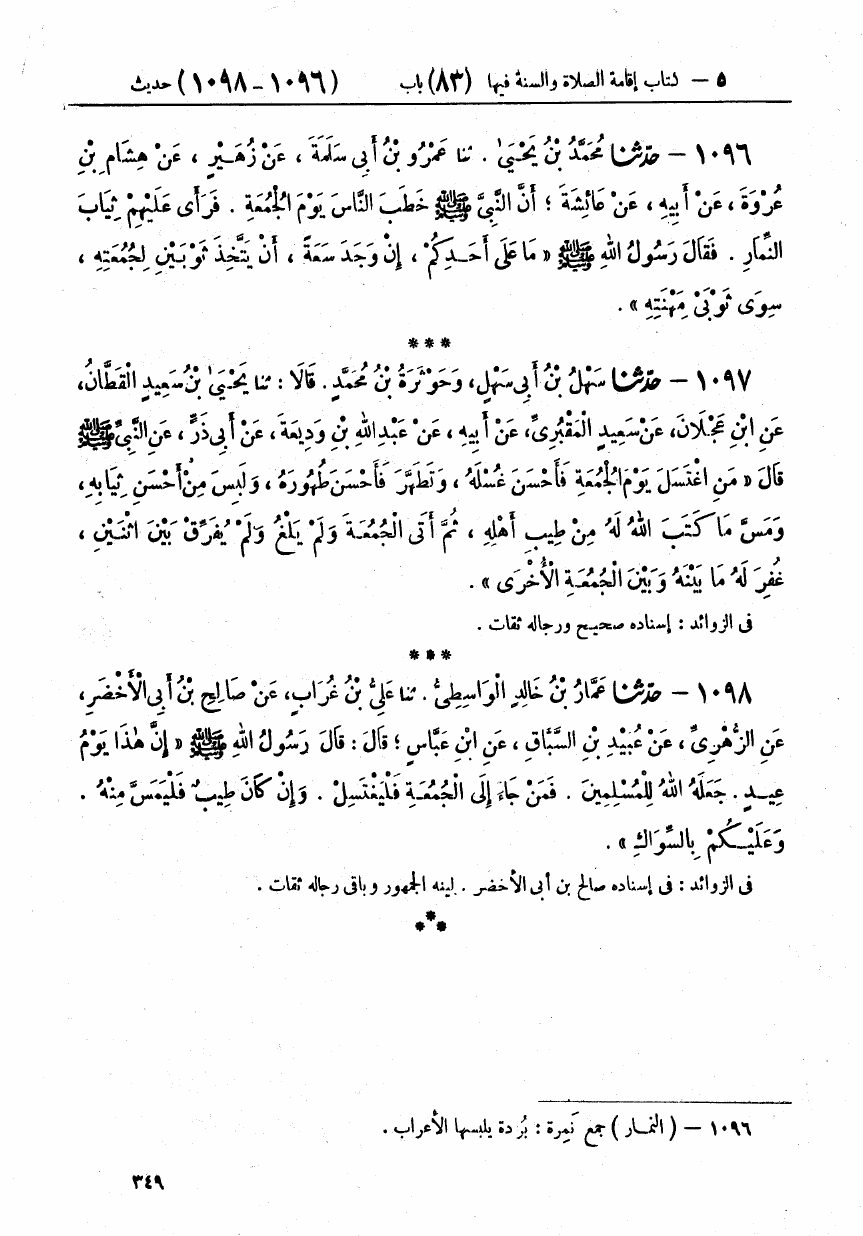 ٥ – كتاب إقامة الصلاة والسنة فيها (٨٣) باب (١٠٩٦ – ١٠٩٨) حديث
١٠٩٦ – حَدَّثَنَا مُحَمَّدُ بْنُ يَحْيَىٰ . ثنا عَمْرُو بْنُ أَبِي سَلَمَةَ ، عَنْ زُهَيْرٍ ، عَنْ هِشَامِ بْنِ
عُرْوَةَ ، عَنْ أَبِيهِ ، عَنْ عَائِشَةَ ؛ أَنَّ النَّبِيَّ ﷺ خَطَبَ النَّاسَ يَوْمَ الْجُمُعَةِ . فَرَأَى عَلَيْهِمْ ثِيَابَ
النِّمَارِ . فَقَالَ رَسُولُ اللهِ ﷺ « مَا عَلَى أَحَدِكُمْ ، إِنْ وَجَدَ سَعَةً ، أَنْ يَتَّخِذَ ثَوْبَيْنِ لِجُمُعَتِهِ ،
سِوَى ثَوْبَيْ مِهْنَتِهِ » .
***
١٠٩٧ – حَدَّثَنَا سَهْلُ بْنُ أَبِي سَهْلٍ، وَحَوْثَرَةُ بْنُ مُحَمَّدٍ. قَالَا : ثنا يَحْيَىٰ بْنُ سَعِيدٍ الْقَطَّانُ،
عَنِ ابْنِ عَجْلَانَ، عَنْ سَعِيدٍ الْمَقْبُرِيِّ، عَنْ أَبِيهِ ، عَنْ عَبْدِ اللهِ بْنِ وَدِيعَةَ ، عَنْ أَبِي ذَرٍّ ، عَنِ النَّبِيِّ ﷺ
قَالَ « مَنِ اغْتَسَلَ يَوْمَ الْجُمُعَةِ فَأَحْسَنَ غُسْلَهُ ، وَتَطَهَّرَ فَأَحْسَنَ طُهُورَهُ ، وَلَبِسَ مِنْ أَحْسَنِ ثِيَابِهِ،
وَمَسَّ مَا كَتَبَ اللهُ لَهُ مِنْ طِيبِ أَهْلِهِ ، ثُمَّ أَتَى الْجُمُعَةَ وَلَمْ يَلْغُ وَلَمْ يُفَرِّقْ بَيْنَ اثْنَيْنِ ،
غُفِرَ لَهُ مَا بَيْنَهُ وَبَيْنَ الْجُمُعَةِ الْأُخْرَى » .
فى الزوائد : إسناده صحيح ورجاله ثقات .
***
١٠٩٨ – حَدَّثَنَا عَمَّارُ بْنُ خَالِدٍ الْوَاسِطِيُّ . ثنا عَلِيُّ بْنُ غُرَابٍ، عَنْ صَالِحِ بْنُ أَبِي الْأَخْضَرِ،
عَنِ الزُّهْرِيِّ ، عَنْ عُبَيْدِ بْنِ السَّبَّاقِ ، عَنِ ابْنِ عَبَّاسٍ ؛ قَالَ : قَالَ رَسُولُ اللهِ ﷺ « إِنَّ هٰذَا يَوْمُ
عِيدٍ . جَعَلَهُ اللهُ لِلْمُسْلِمِينَ . فَمَنْ جَاءَ إِلَى الْجُمُعَةِ فَلْيَغْتَسِلْ . وَإِنْ كَانَ طِيبٌ فَلْيَمَسَّ مِنْهُ .
وَعَلَيْكُمْ بِالسِّوَاكِ » .
فى الزوائد : فى إسناده صالح بن أبى الأخضر . لينه الجمهور وباقى رجاله ثقات .
***
١٠٩٦ – ( النمار ) جمع نَمِرة : بُردة يلبسها الأعراب .
٣٤٩